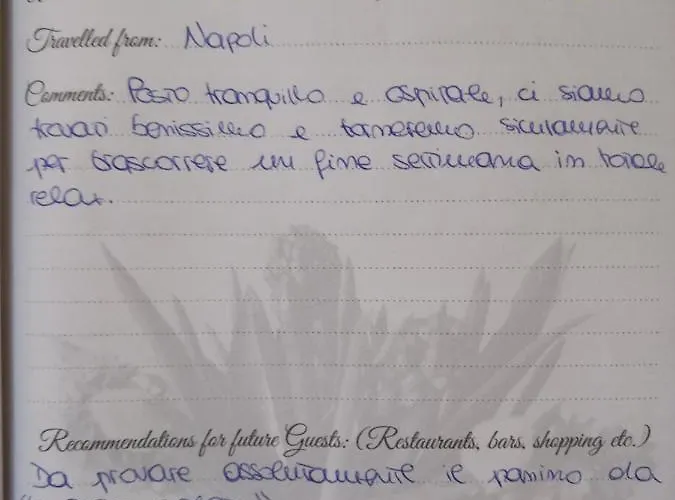 Travelled from: Napoli
Comments: Posto tranquillo e ospitale, ci siamo
trovati benissimo e torneremo sicuramente
per trascorrere un fine settimana in totale
relax.
Recommendations for future Guests: (Restaurants, bars, shopping etc.)
Da provare assolutamente il panino da